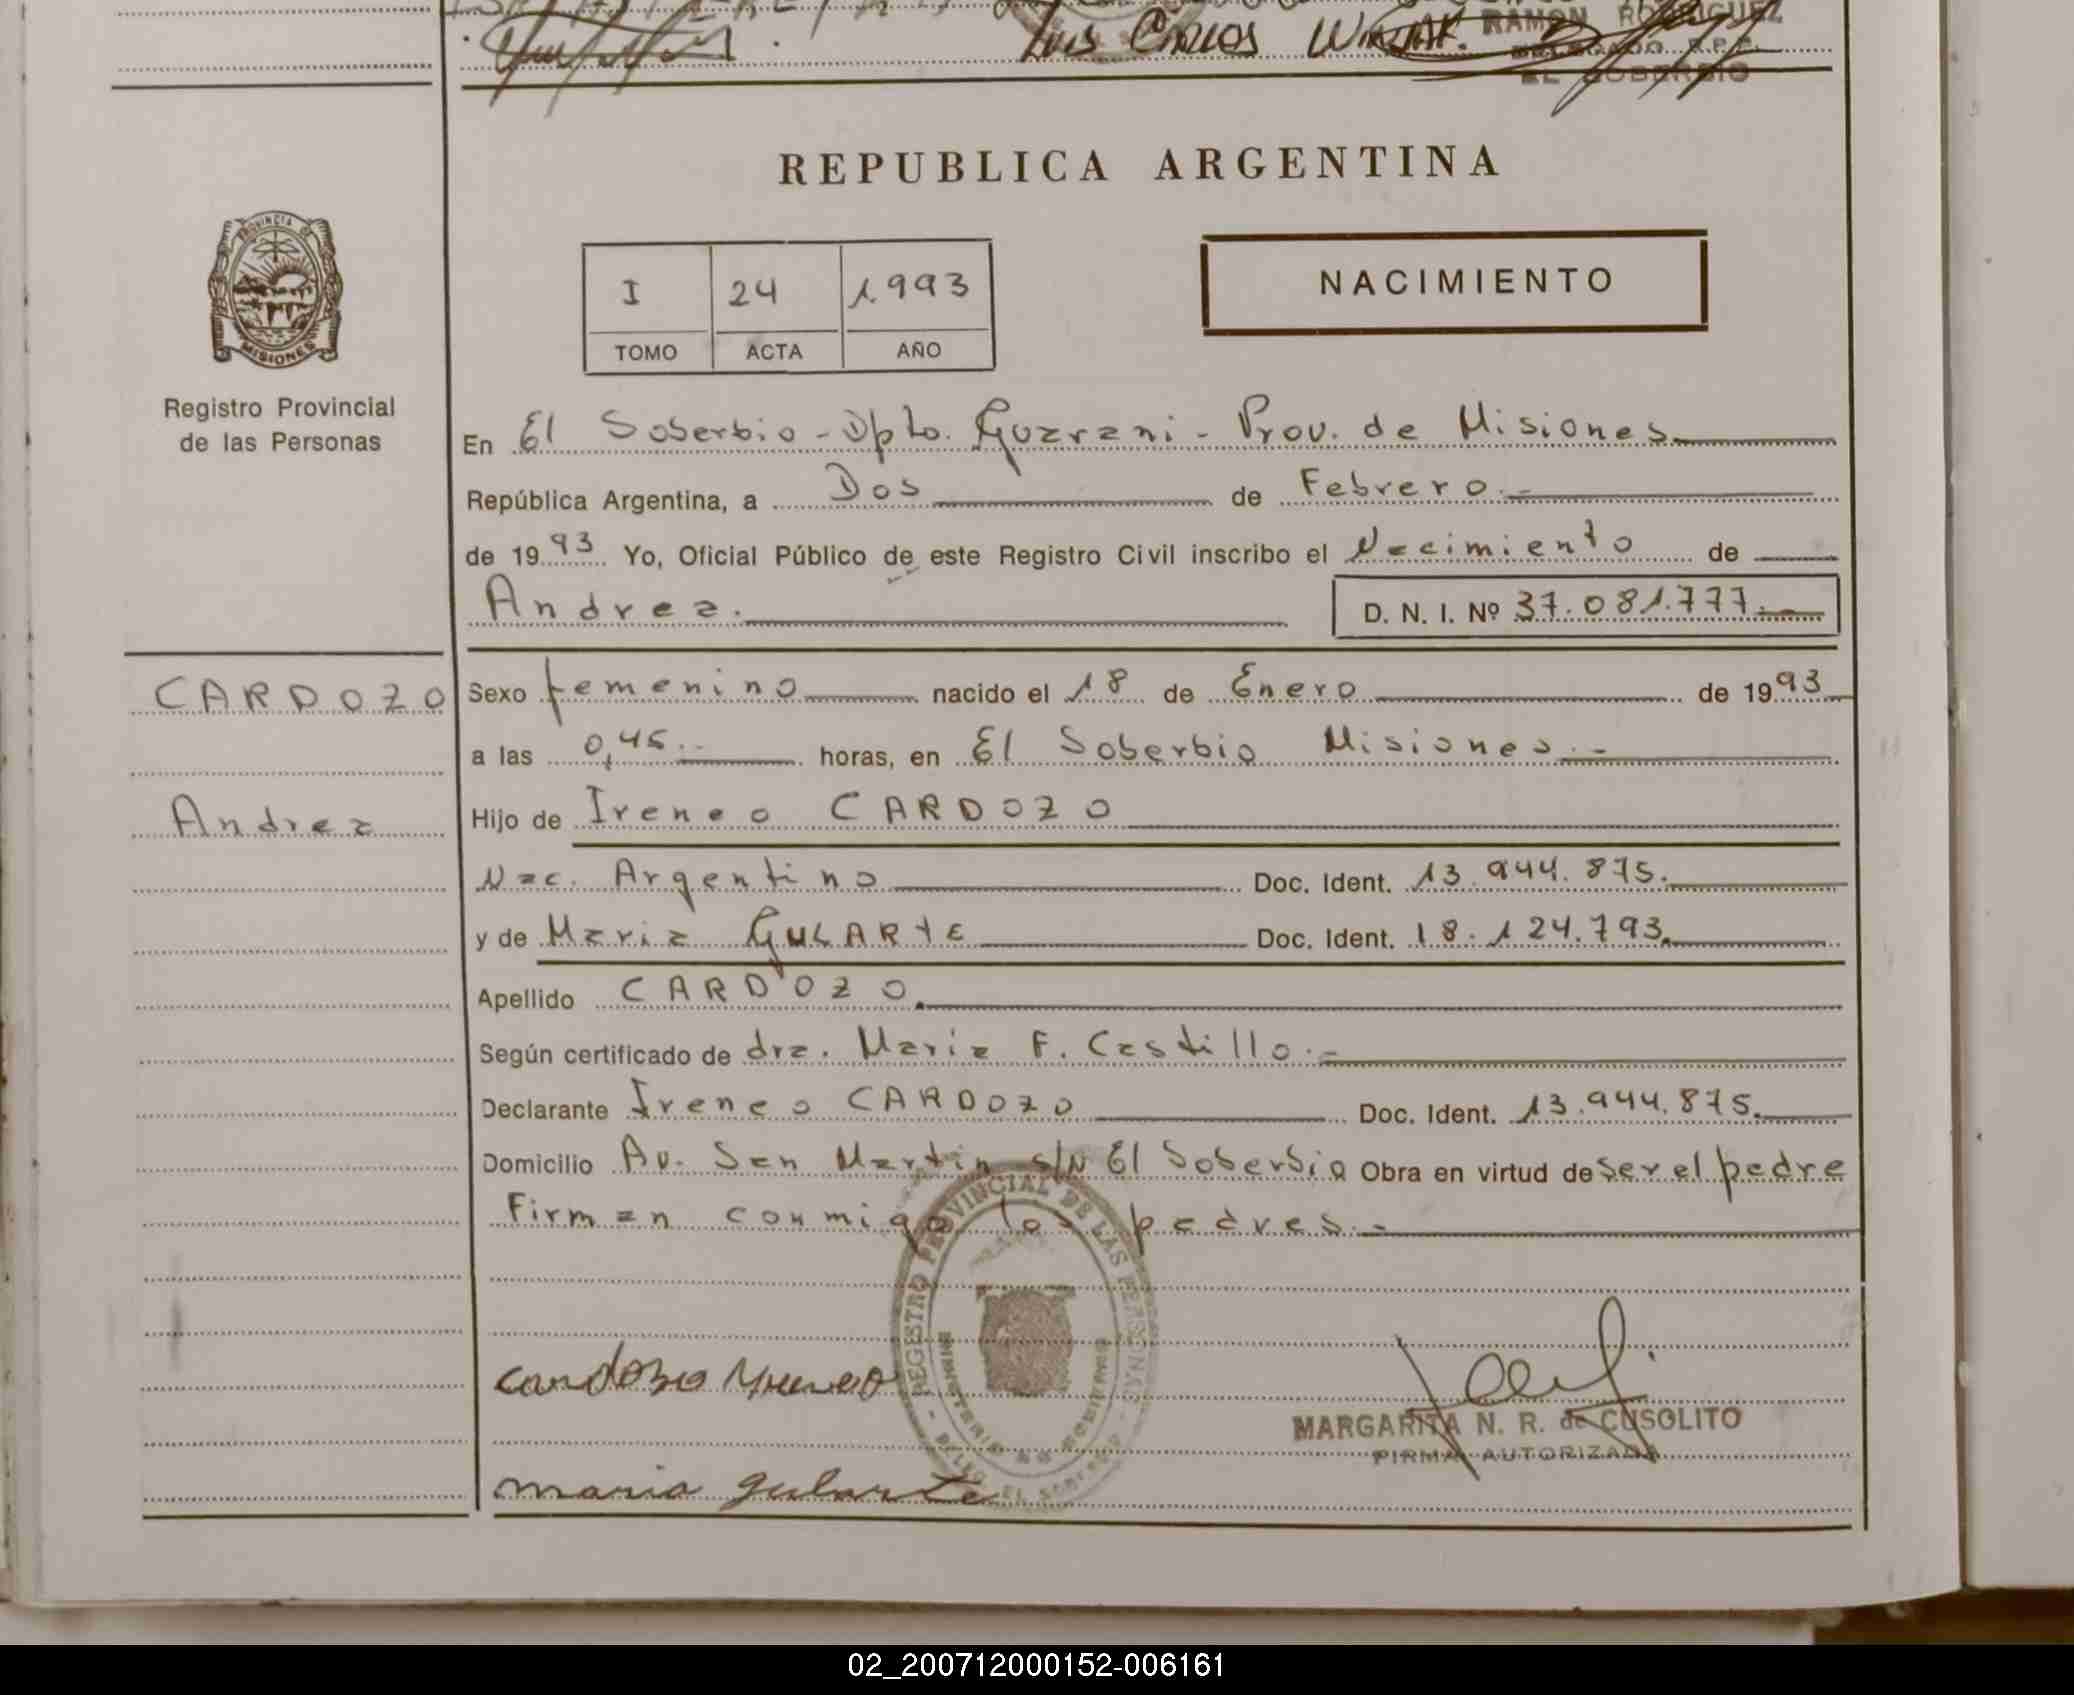 Luis Carlos
RAMON RODRIGUEZ
DELEGADO R.P.P.
EL SOBERBIO
REPUBLICA ARGENTINA
PROVINCIA DE
MISIONES
I 24 1.993
TOMO ACTA AÑO
NACIMIENTO
Registro Provincial
de las Personas
En El Soberbio - Dpto. Guarani - Prov. de Misiones
República Argentina, a Dos de Febrero.-
de 19 93 Yo, Oficial Público de este Registro Civil inscribo el Nacimiento de
Andrea. D. N. I. Nº 37.081.777.-
CARDOZO
Sexo femenino nacido el 18 de Enero de 19 93
a las 0,45.- horas, en El Soberbio Misiones.-
Andrea
Hijo de Ireneo CARDOZO
Nac. Argentino Doc. Ident. 13.944.875.
y de Maria GULARTE Doc. Ident. 18.124.793.
Apellido CARDOZO.
Según certificado de dra. Maria F. Castillo.-
Declarante Ireneo CARDOZO Doc. Ident. 13.944.875.
Domicilio Av. San Martin s/N El Soberbio Obra en virtud de ser el padre
Firman conmigo los padres.-
REGISTRO PROVINCIAL DE LAS PERSONAS
cardozo Yreneo
MARGARITA N. R. de CUSOLITO
FIRMA AUTORIZADA
maria gularte
02_200712000152-006161